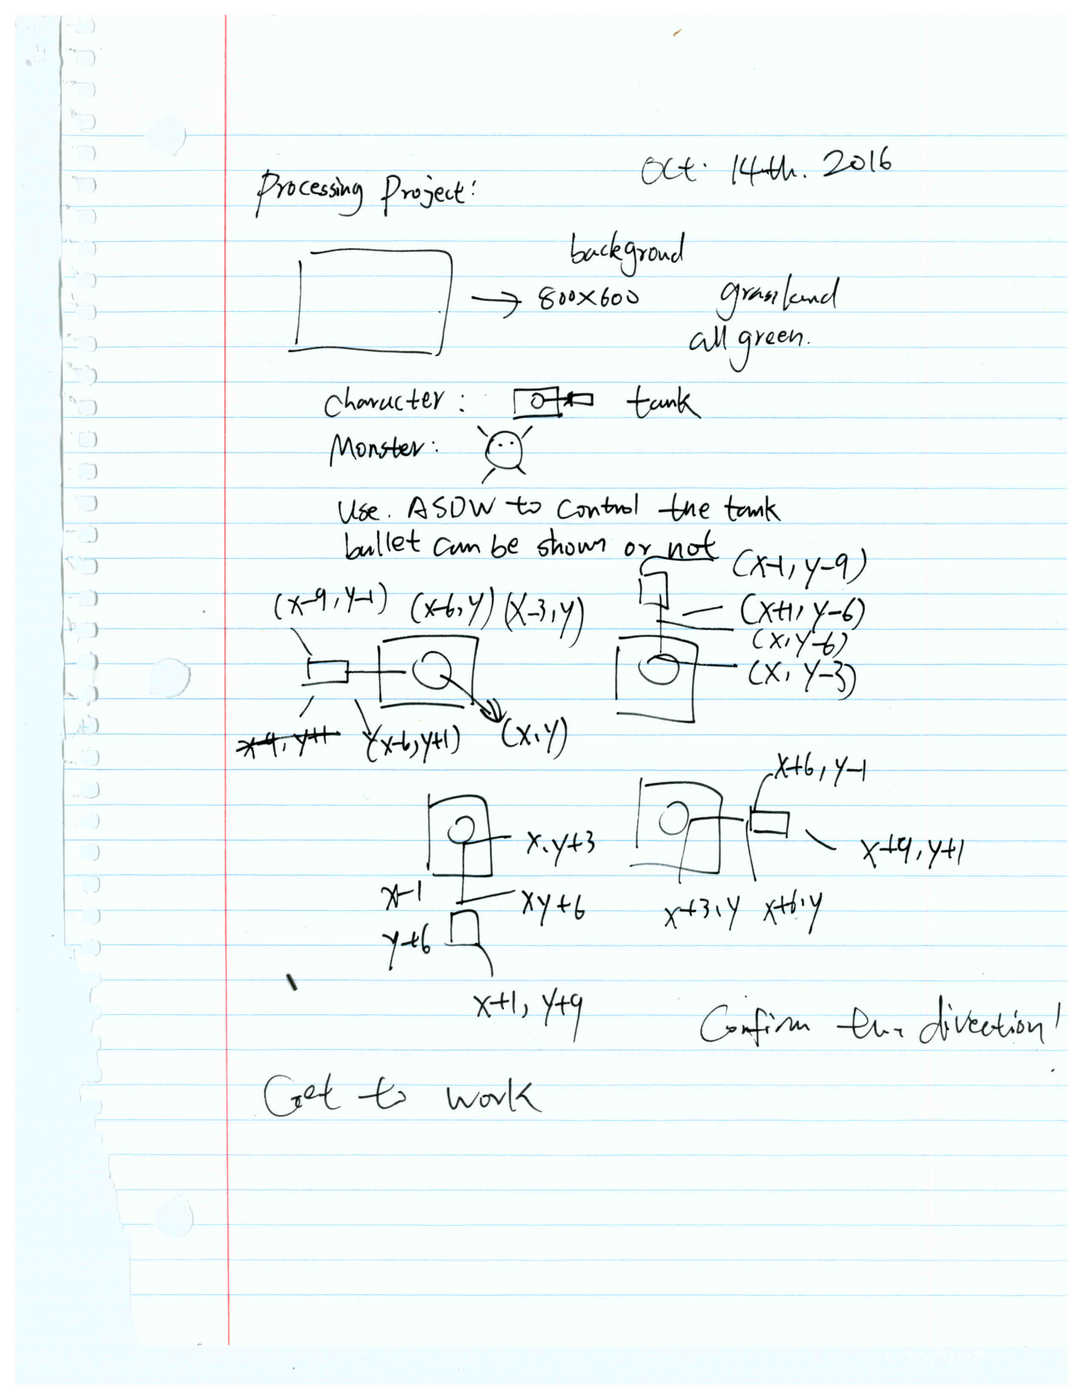 Oct. 14th. 2016
Processing Project:
backgroud
800x600
grassland
all green.
Character: tank
Monster:
Use. ASDW to control the tank
bullet can be shown or not
(x-1, y-9)
(x-9, y-1) (x-6, y) (x-3, y)
(x+1, y-6)
(x, y-6)
(x, y-3)
x-9, y+1 (x-6, y+1) (x, y)
x+6, y-1
x, y+3
x+9, y+1
x-1
y+6
xy+6
x+3, y x+6, y
x+1, y+9
Confirm the direction!
Get to work